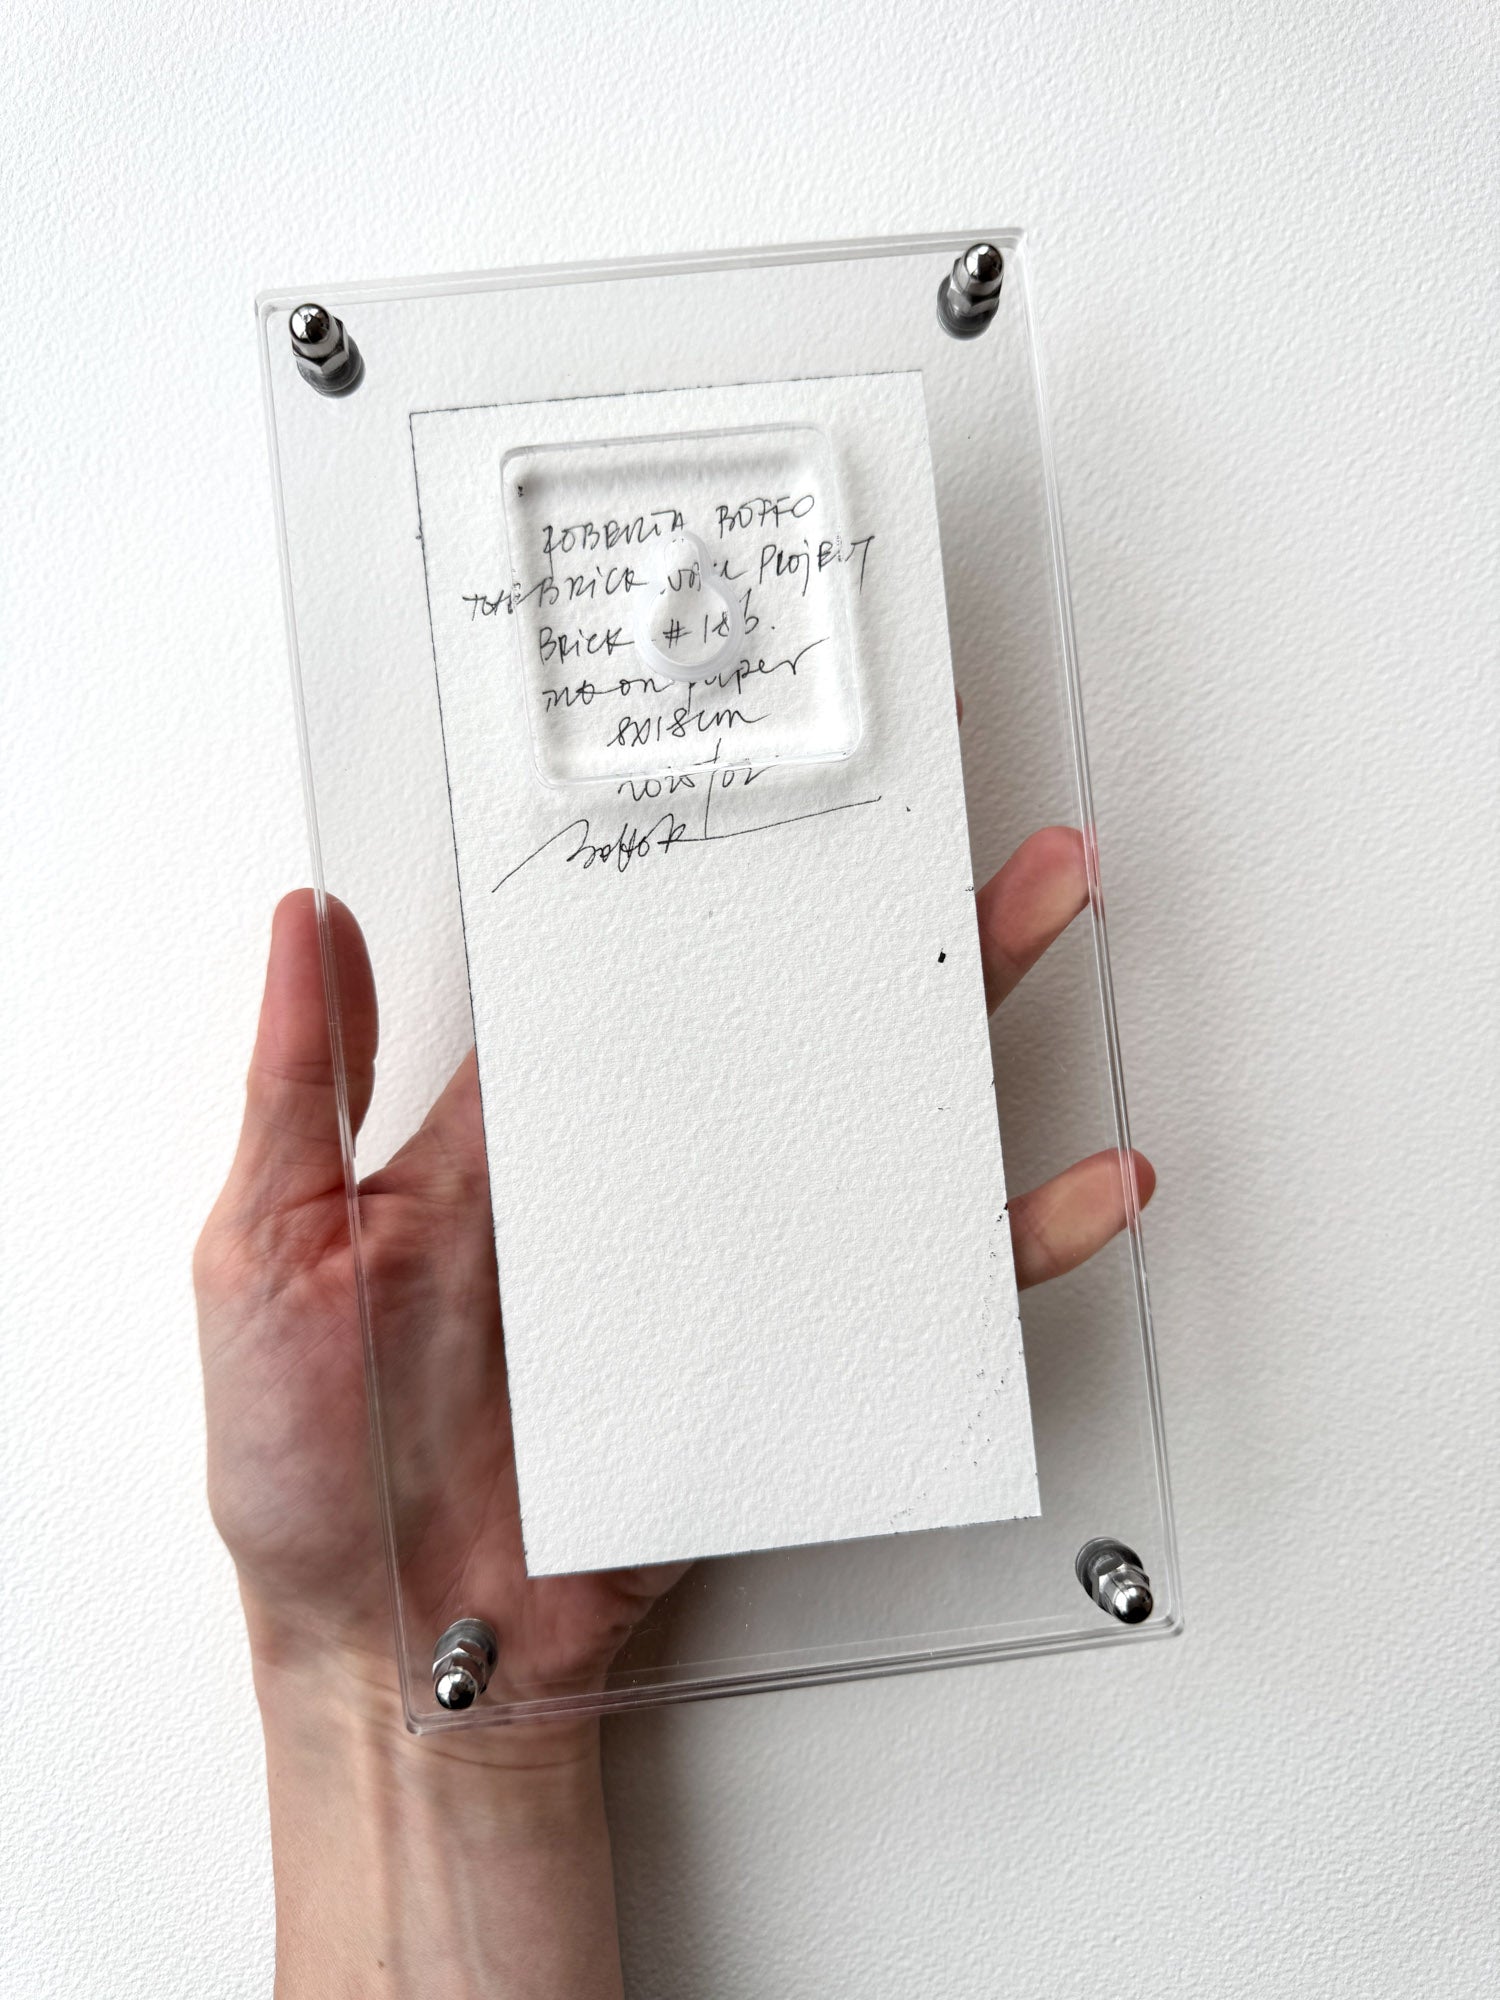 ROBERTA BOFFO
THE BRICK WALL PROJEKT
BRICK #186.
INK on paper
8x18cm
2025/02
Boffo R